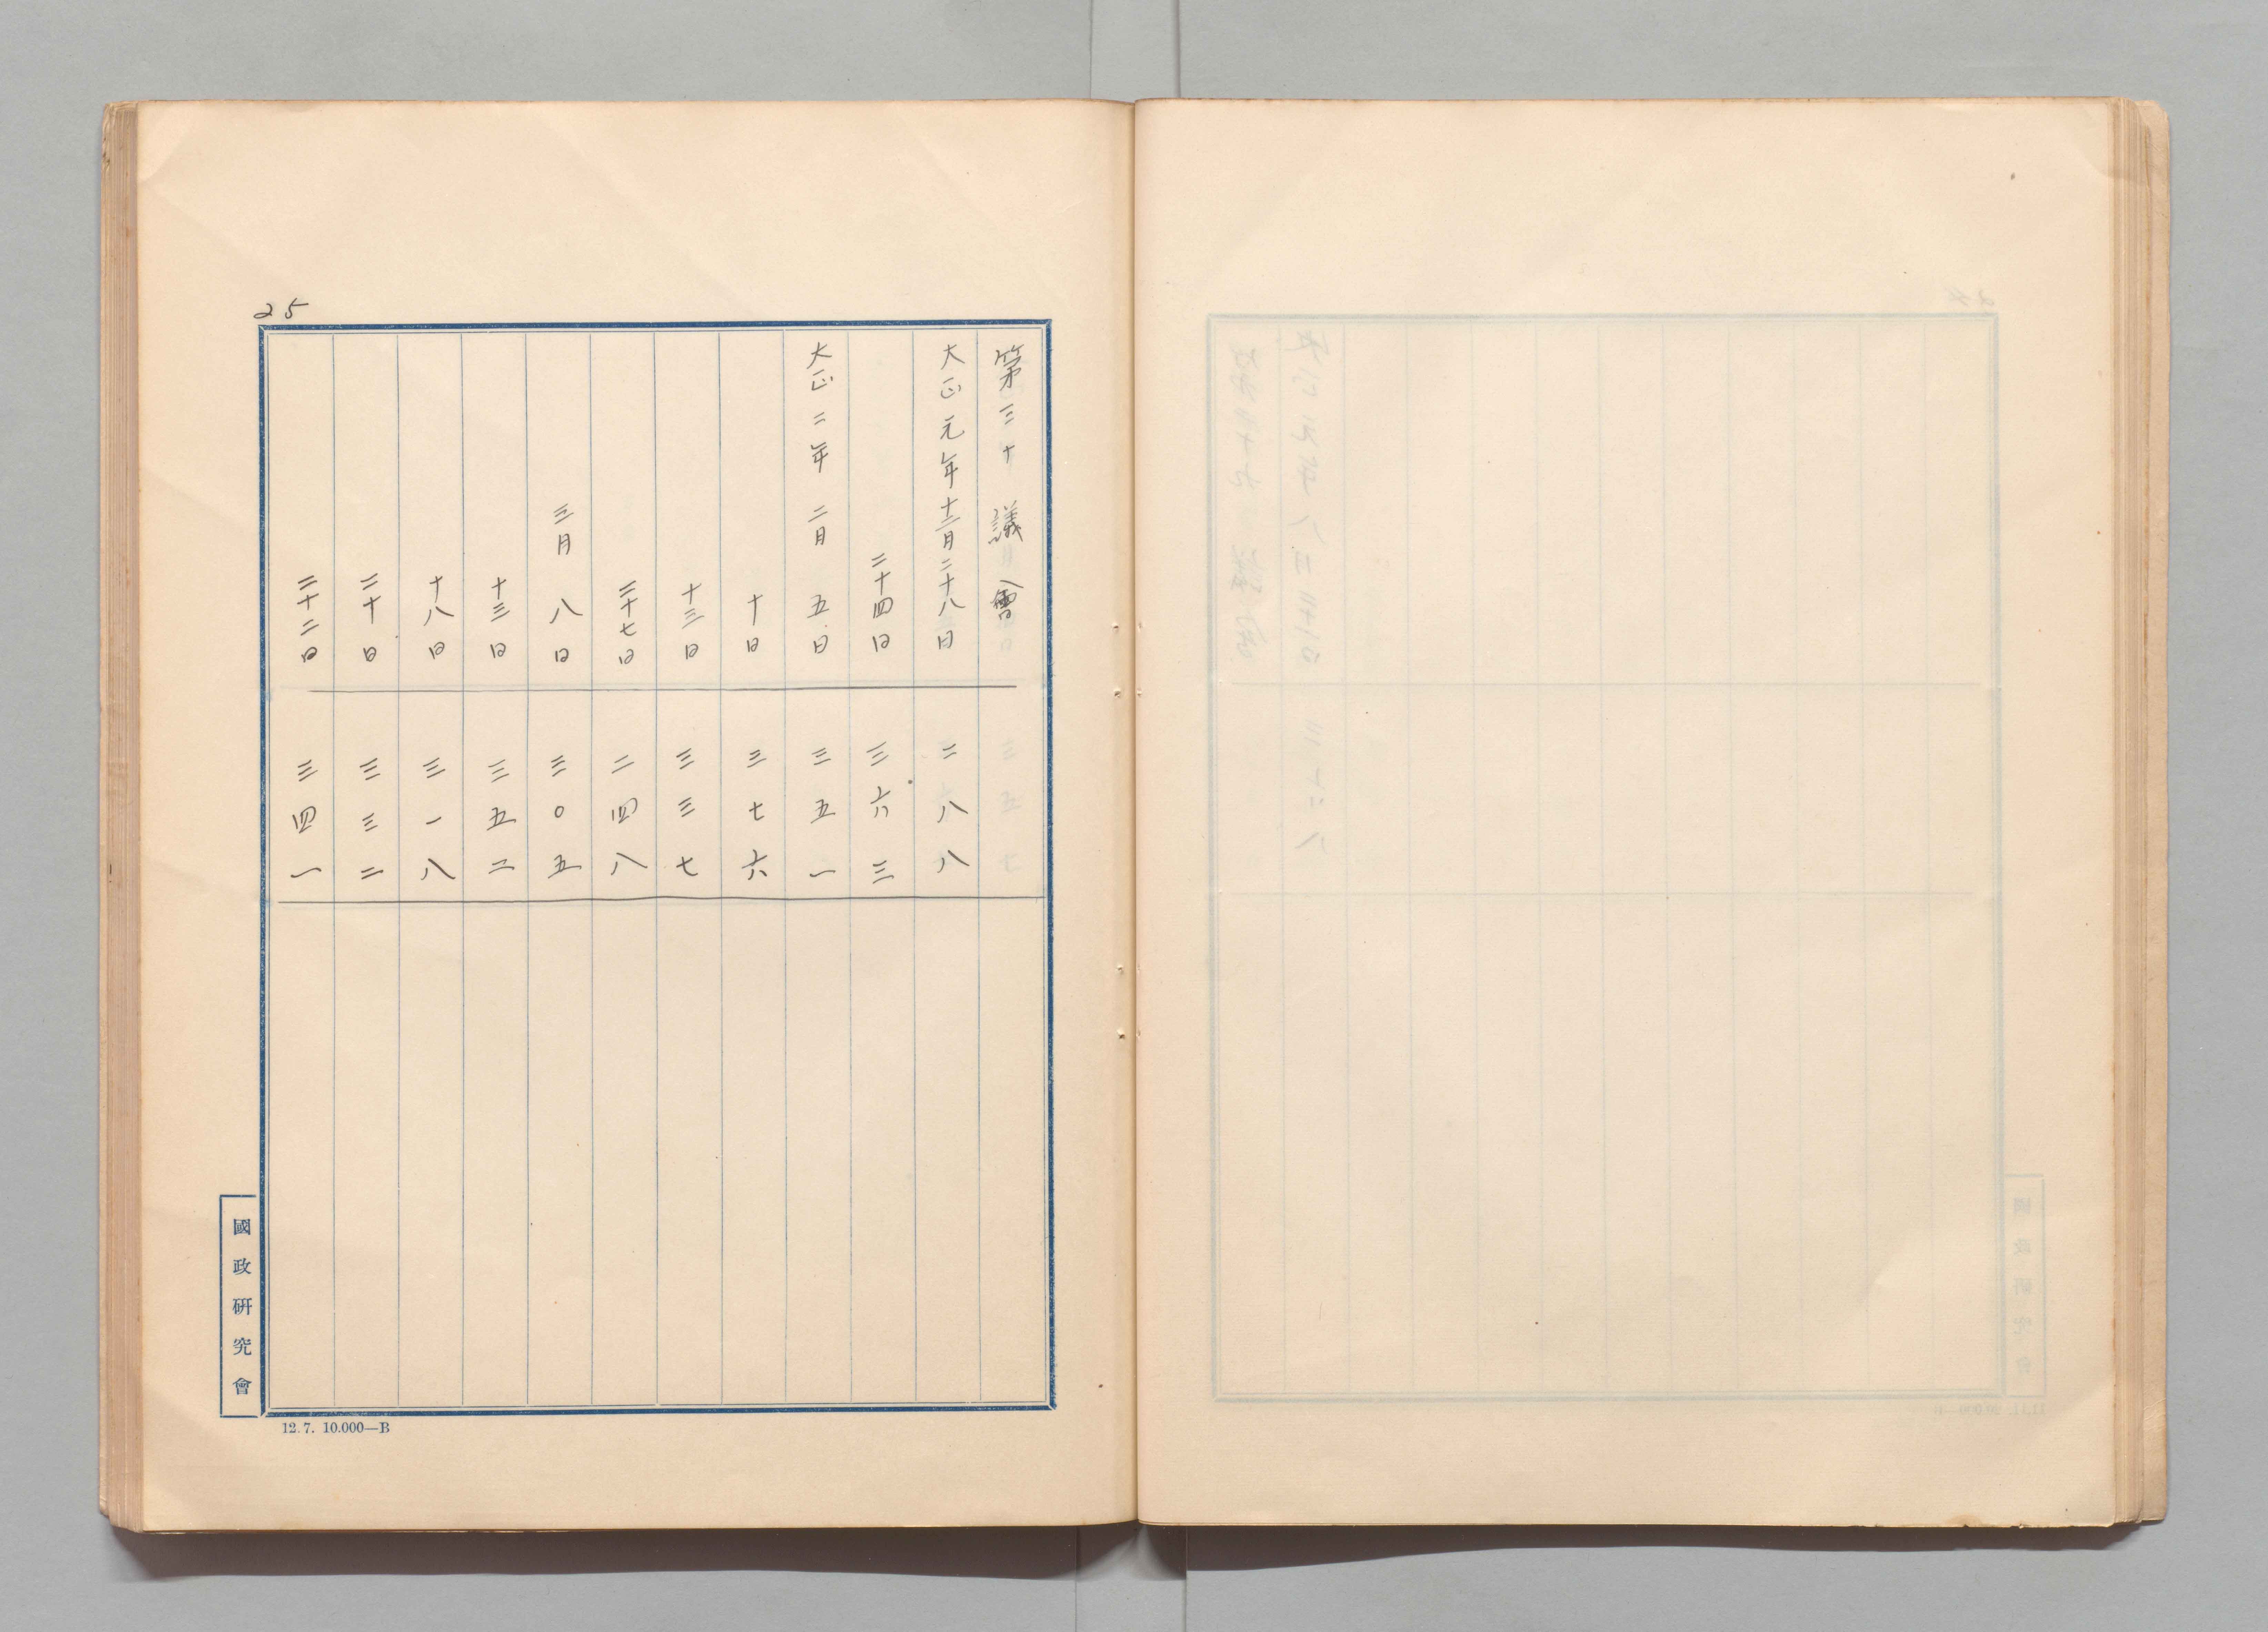 25
第三十議會
大正元年十二月二十八日 二八八
二十四日 三六三
大正二年二月五日 三五一
十日 三七六
十三日 三三七
二十七日 二四八
三月八日 三〇五
十三日 三五二
十八日 三一八
二十日 三三二
二十二日 三四一
國政研究會
12.7. 10.000—B